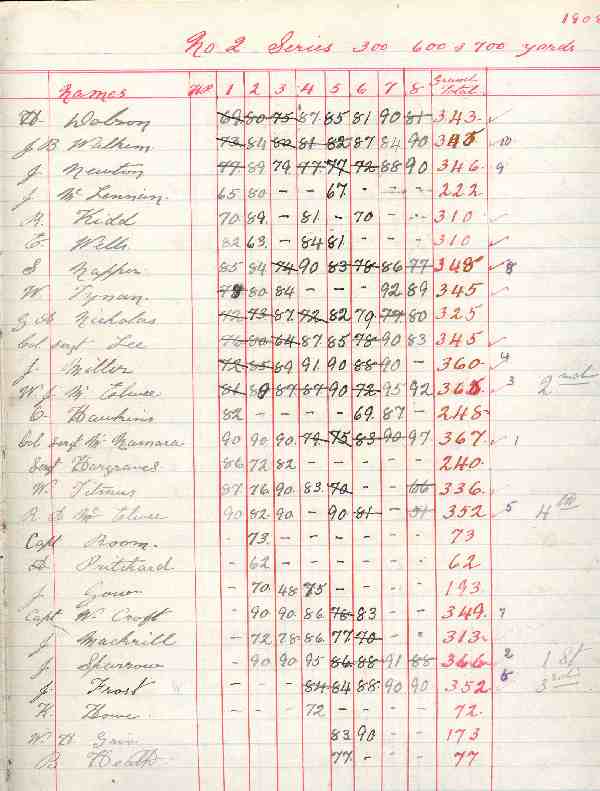 1908
No 2 Series 300 600 & 700 yards
Names 1 2 3 4 5 6 7 8 Grand Total
Dobson 69 80 75 87 85 81 90 81 343
J B Wilkin 73 84 82 81 82 87 84 90 345 10
J. Newton 77 89 79 77 77 72 88 90 346 9
J. Mc Lennan 65 80 - - 67 - - - 222
Kidd 70 89 - 81 - 70 - - 310
E. Wells 82 63 - 84 81 - - - 310
S Napper 85 84 74 90 83 78 86 77 348 8
W. Tynan 80 84 - - - 92 89 345
Nicholas 72 73 87 72 82 79 77 80 325
Col Sergt Lee 76 80 64 87 85 78 90 83 345
J. Miller 72 85 89 91 90 88 90 - 360 4
W J Mc Elwee 81 89 87 87 90 72 95 92 3 2nd
Hawkins 82 - - - - 69 87 - 248
Col Sergt Mc Namara 90 90 90 79 75 83 90 97 367 1
Sergt Hargraves 86 72 82 - - - - - 240
W. Titmus 87 76 90 83 70 - - 66 336
R Mc Elwee 90 82 90 - 90 81 - 51 352 5 4th
Capt Room - 73 - - - - - - 73
Pritchard - 62 - - - - - - 62
J Gower - 70 48 75 - - - - 193
Capt W. Croft - 90 90 86 78 83 - - 349 7
J. Mackrill - 72 78 86 77 70 - - 313
J. Sparrow - 90 90 95 86 88 91 88 366 2 1st
J. Frost - - - 84 84 88 90 90 352 3rd
Howe - - - 72 - - - - 72
W. H 83 90 - - 173
B Heath 77 - - - 77